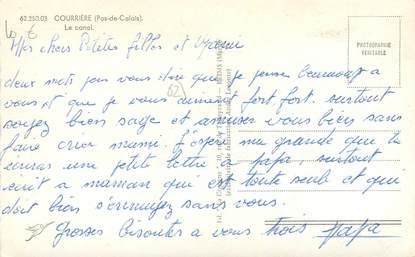 62.250.03 COURRIÈRE (Pas-de-Calais).
Le canal.
PHOTOGRAPHIE
VÉRITABLE
62
Mes chères Petites filles et
deux mots pour vous dire que je pense beaucoup a
vous et que je vous aiment fort fort. surtout
soyez bien sage et amuser vous bien sans
faire crier mamie. J'espère ma grande que tu
écriras une petite lettre a papa, surtout
écrit a maman qui est toute seule et qui
doit bien s'ennuyez sans vous.
Grosses bisoutes a vous trois papa